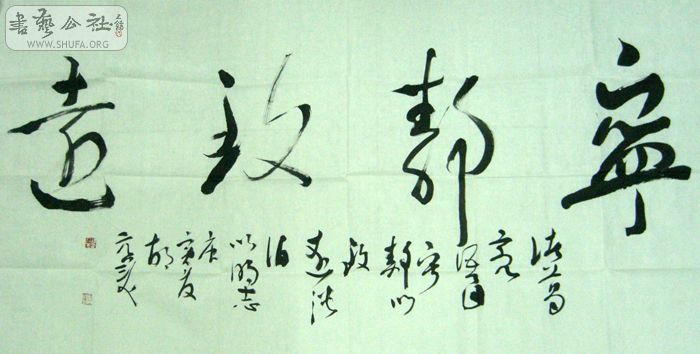 書藝公社
WWW.SHUFA.ORG
寧靜致遠
诸葛
亮
宁
静以
致
远淡
泊
以明志
庚
寅夏
胡